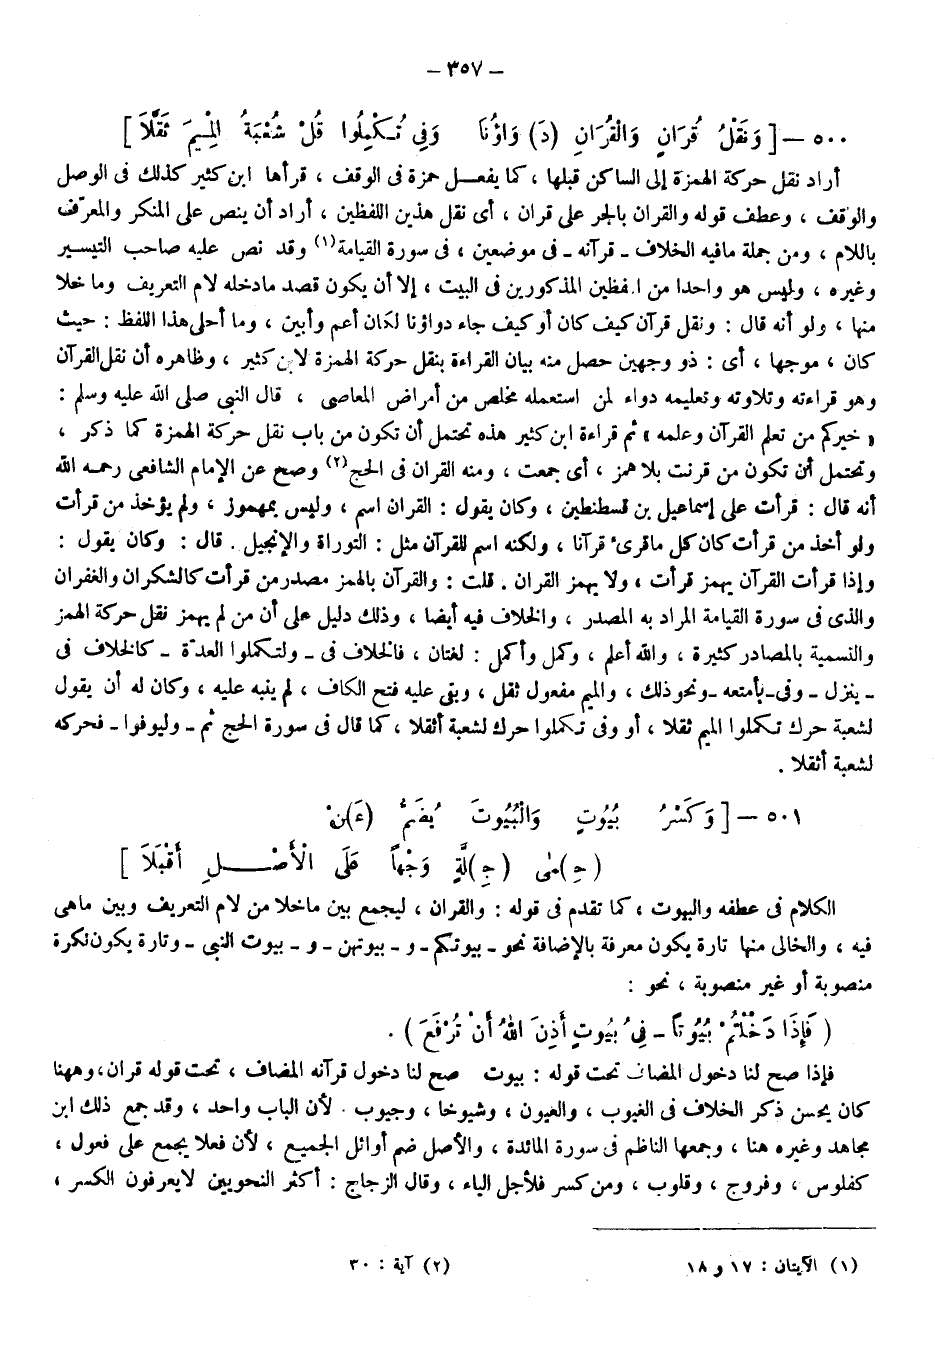 – ٣٥٧ –
٥٠٠ – [ وَنَقْلُ قُرَانٍ وَالْقُرَانِ (دَ) وَاوُنَا وَفِي تُكْمِلُوا قُلْ شُعْبَةُ الْمِيمَ ثَقَّلَا ]
أراد نقل حركة الهمزة إلى الساكن قبلها ، كما يفعل حمزة فى الوقف ، قرأها ابن كثير كذلك فى الوصل
والوقف ، وعطف قوله والقران بالجر على قران ، أى نقل هذين اللفظين ، أراد أن ينص على المنكر والمعرّف
باللام ، ومن جملة مافيه الخلاف ـ قرآنه ـ فى موضعين ، فى سورة القيامة(١) وقد نص عليه صاحب التيسير
وغيره ، وليس هو واحدا من اللفظين المذكورين فى البيت ، إلا أن يكون قصد مادخله لام التعريف وما خلا
منها ، ولو أنه قال : ونقل قرآن كيف كان أو كيف جاء دواؤنا لكان أعم وأبين ، وما أحلى هذا اللفظ : حيث
كان ، موجها ، أى : ذو وجهين حصل منه بيان القراءة بنقل حركة الهمزة لابن كثير ، وظاهره أن نقل القرآن
وهو قراءته وتلاوته وتعليمه دواء لمن استعمله مخلص من أمراض المعاصى ، قال النبى صلى الله عليه وسلم :
« خيركم من تعلم القرآن وعلمه » ثم قراءة ابن كثير هذه تحتمل أن تكون من باب نقل حركة الهمزة كما ذكر ،
وتحتمل أن تكون من قرنت بلا همز ، أى جمعت ، ومنه القران فى الحج(٢) وصح عن الإمام الشافعى رحمه الله
أنه قال : قرأت على إسماعيل بن قسطنطين ، وكان يقول : القران اسم ، وليس بمهموز ، ولم يؤخذ من قرأت
ولو أخذ من قرأت كان كل ماقرئ قرآنا ، ولكنه اسم للقرآن مثل : التوراة والإنجيل . قال : وكان يقول :
وإذا قرأت القرآن يهمز قرأت ، ولا يهمز القران . قلت : والقرآن بالهمز مصدر من قرأت كالشكران والغفران
والذى فى سورة القيامة المراد به المصدر ، والخلاف فيه أيضا ، وذلك دليل على أن من لم يهمز نقل حركة الهمز
والتسمية بالمصادر كثيرة ، والله أعلم ، وكمل وأكمل : لغتان ، فالخلاف فى ـ ولتكملوا العدّة ـ كالخلاف فى
ـ ينزل ـ وفى ـ بأمتعه ـ ونحو ذلك ، والميم مفعول ثقل ، وبقى عليه فتح الكاف ، لم ينبه عليه ، وكان له أن يقول
لشعبة حرك تكملوا الميم ثقلا ، أو وفى تكملوا حرك لشعبة أثقلا ، كما قال فى سورة الحج ثم ـ وليوفوا ـ فحركه
لشعبة أثقلا .
٥٠١ – [ وَكَسْرُ بُيُوتٍ وَالْبُيُوتَ يُضَمُّ (عَ)نْ
(حِ)مٰى (جِ)لَّةٍ وَجْهاً عَلَى الْأَصْلِ أَقْبَلَا ]
الكلام فى عطفه والبيوت ، كما تقدم فى قوله : والقران ، ليجمع بين ماخلا من لام التعريف وبين ماهى
فيه ، والخالى منها تارة يكون معرفة بالإضافة نحو ـ بيوتكم ـ و ـ بيوتهن ـ و ـ بيوت النبى ـ وتارة يكون نكرة
منصوبة أو غير منصوبة ، نحو :
( فَإِذَا دَخَلْتُمْ بُيُوتاً ـ فِي بُيُوتٍ أَذِنَ اللهُ أَنْ تُرْفَعَ ) .
فإذا صح لنا دخول المضاف تحت قوله : بيوت صح لنا دخول قرآنه المضاف ، تحت قوله قران ، وههنا
كان يحسن ذكر الخلاف فى الغيوب ، والعيون ، وشيوخا ، وجيوب . لأن الباب واحد ، وقد جمع ذلك ابن
مجاهد وغيره هنا ، وجمعها الناظم فى سورة المائدة ، والأصل ضم أوائل الجميع ، لأن فعلا يجمع على فعول ،
كفلوس ، وفروج ، وقلوب ، ومن كسر فلأجل الياء ، وقال الزجاج : أكثر النحويين لايعرفون الكسر ،
(١) الآيتان : ١٧ و ١٨
(٢) آية : ٣٠